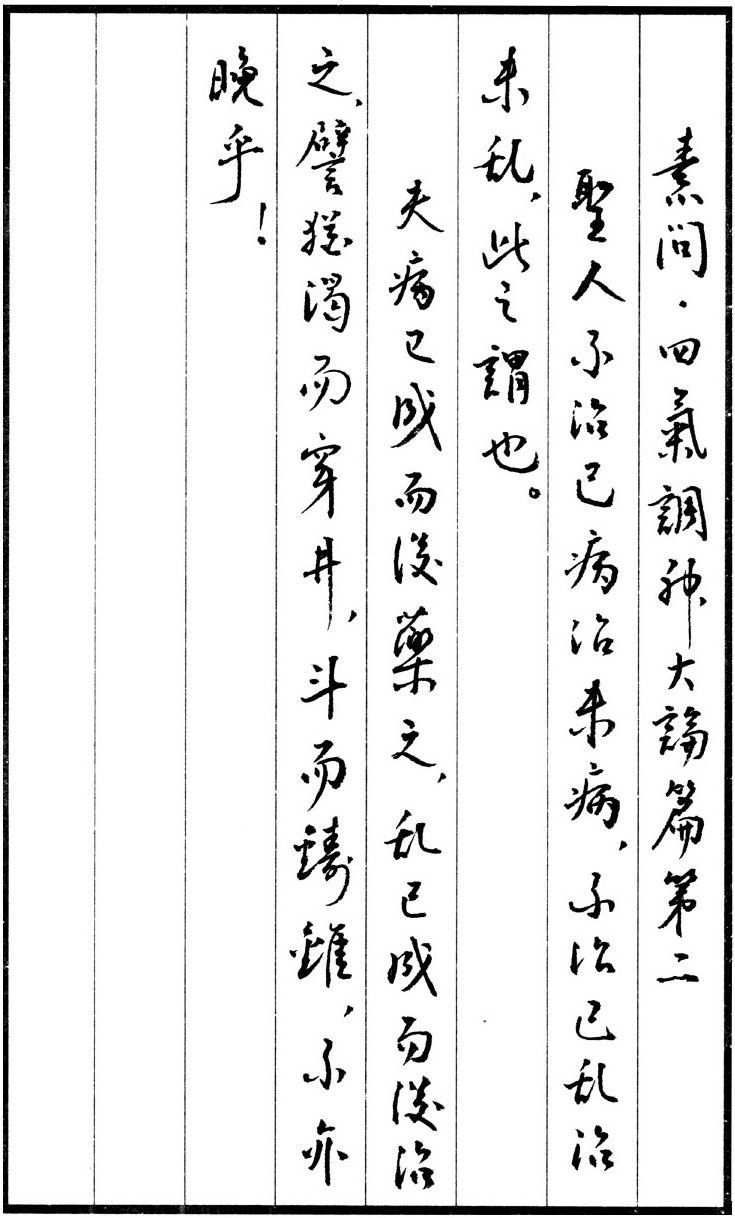 素問·四氣調神大論篇第二
聖人不治已病治未病，不治已乱治
未乱，此之謂也。
夫病已成而後藥之，乱已成而後治
之，譬猶渴而穿井，斗而鑄錐，不亦
晚乎！